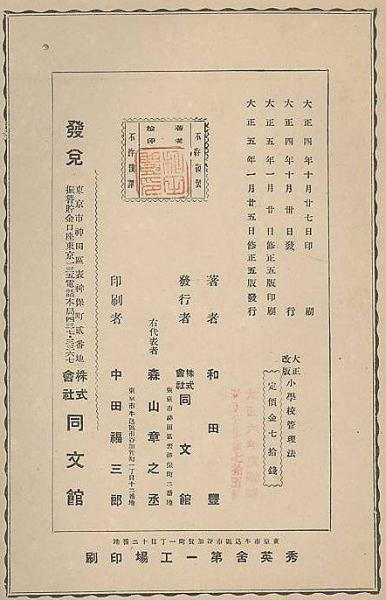 大正四年十月廿七日印刷
大正四年十月卅日發行
大正五年一月廿日修正五版印刷
大正五年一月廿五日修正五版發行
大正改版 小學校管理法
定價金七拾錢
不許複製
著者檢印
不許飜譯
著者 和田豐
東京市神田區表神保町二番地
發行者 株式會社 同文館
右代表者 森山章之丞
東京市牛込區市谷加賀町一丁目十二番地
印刷者 中田福三郎
東京市神田區表神保町貳番地
發兌 株式會社 同文館
東京市牛込區市谷加賀町一丁目十二番地
秀英舍第一工場印刷